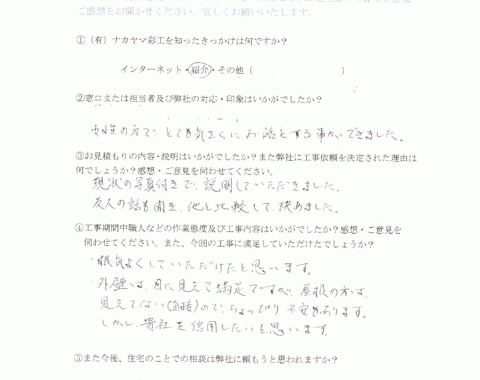 ご感想をお聞かせください。宜しくお願いいたします。
①（有）ナカヤマ彩工を知ったきっかけは何ですか？
インターネット・紹介・その他（　　　　　　　　）
②窓口または担当者及び弊社の対応・印象はいかがでしたか？
女性の方で、とても気さくにお話をする事ができました。
③お見積もりの内容・説明はいかがでしたか？また弊社に工事依頼を決定された理由は
何でしょうか？感想・ご意見を伺わせてください。
現状の写真付きで、説明していただきました。
友人の話も聞き、他と比較して、決めました。
④工事期間中職人などの作業態度及び工事内容はいかがでしたか？感想・ご意見を
伺わせてください。また、今回の工事に満足していただけたでしょうか？
・根気よくしていただけたと思います。
・外壁は、目に見えて満足ですが、屋根の方は、
見えてない(直接)ので、ちょっぴり不安もあります。
しかし、貴社を信用したいと思います。
⑤また今後、住宅のことでの相談は弊社に頼もうと思われますか？